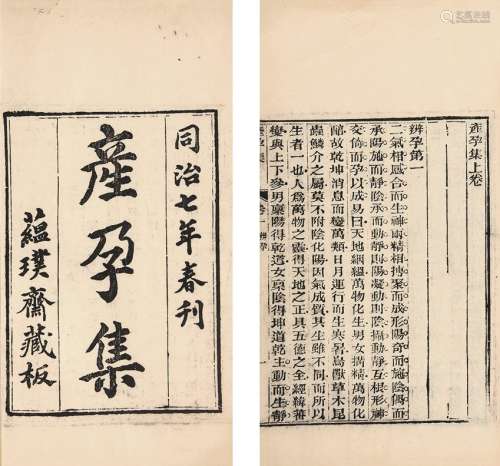 同治七年春刊
產孕集
蘊璞齋藏板
產孕集上卷
辨孕第一
二氣相感合而生神兩精相摶聚而成形陽奇而施陰偶而
承陽施而靜陰承而動靜則陽凝動則陰攝動靜互根形神
交倚而孕以成易曰天地絪縕萬物化生男女搆精萬物化
醇故乾坤消息而變萬類日月運行而生寒暑鳥獸草木昆
蟲鱗介之屬莫不附陰化陽因氣成質其生雖不同而所以
生者一也人為萬物之靈得天地之正具五德之全經緯蕃
變與上下參男稟陽得乾道女稟陰得坤道乾主動而生靜
產孕集